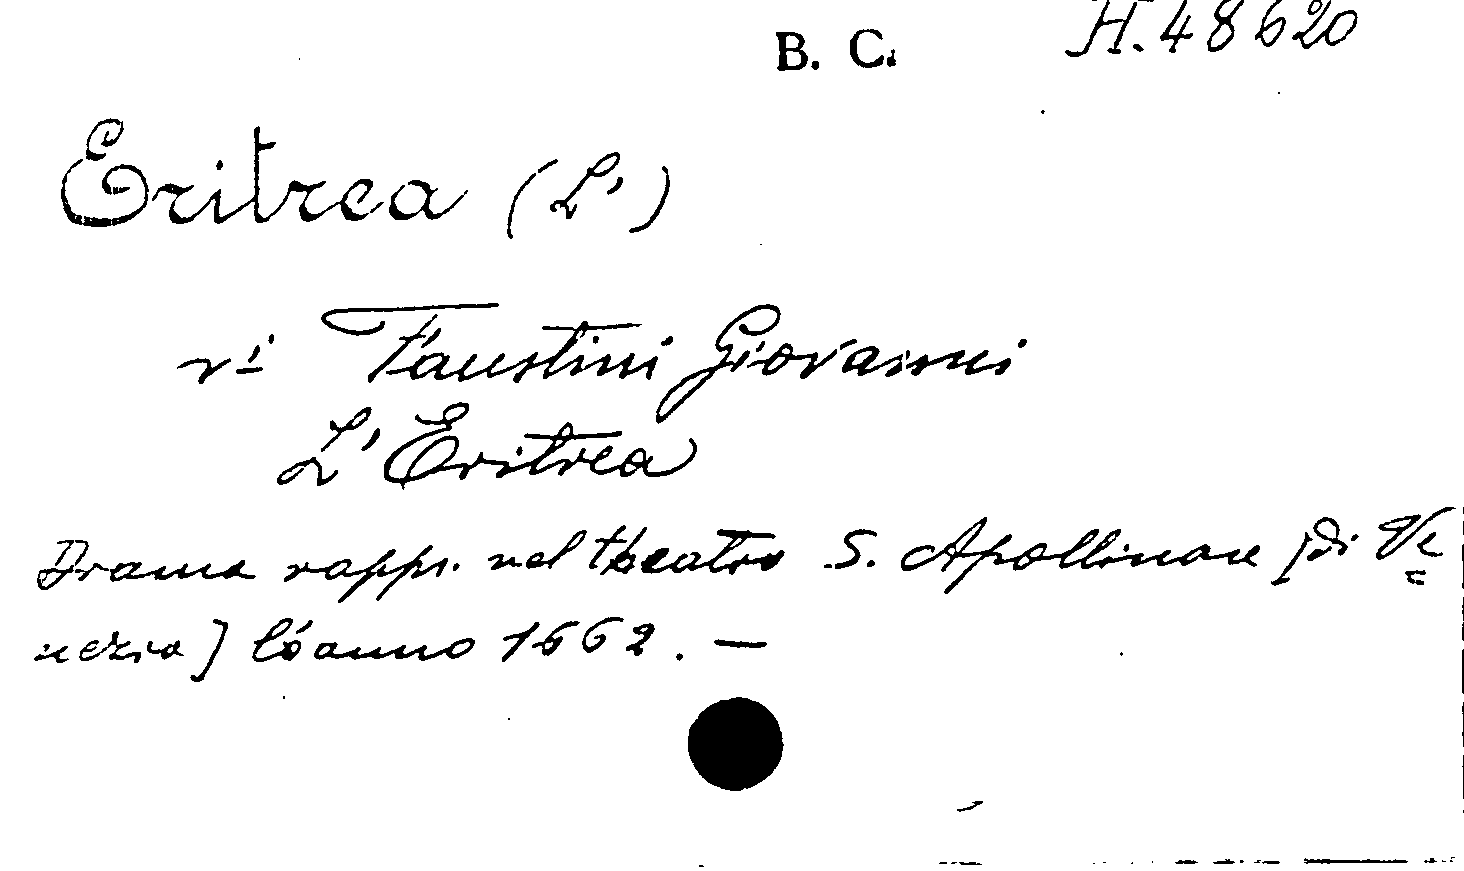 B. C. H. 48620
Eritrea (L')
vi Faustini Giovanni
L'Eritrea
Drama rappr. nel theatro S. Apollinare [di Ve=
nezia] l'anno 1662. —